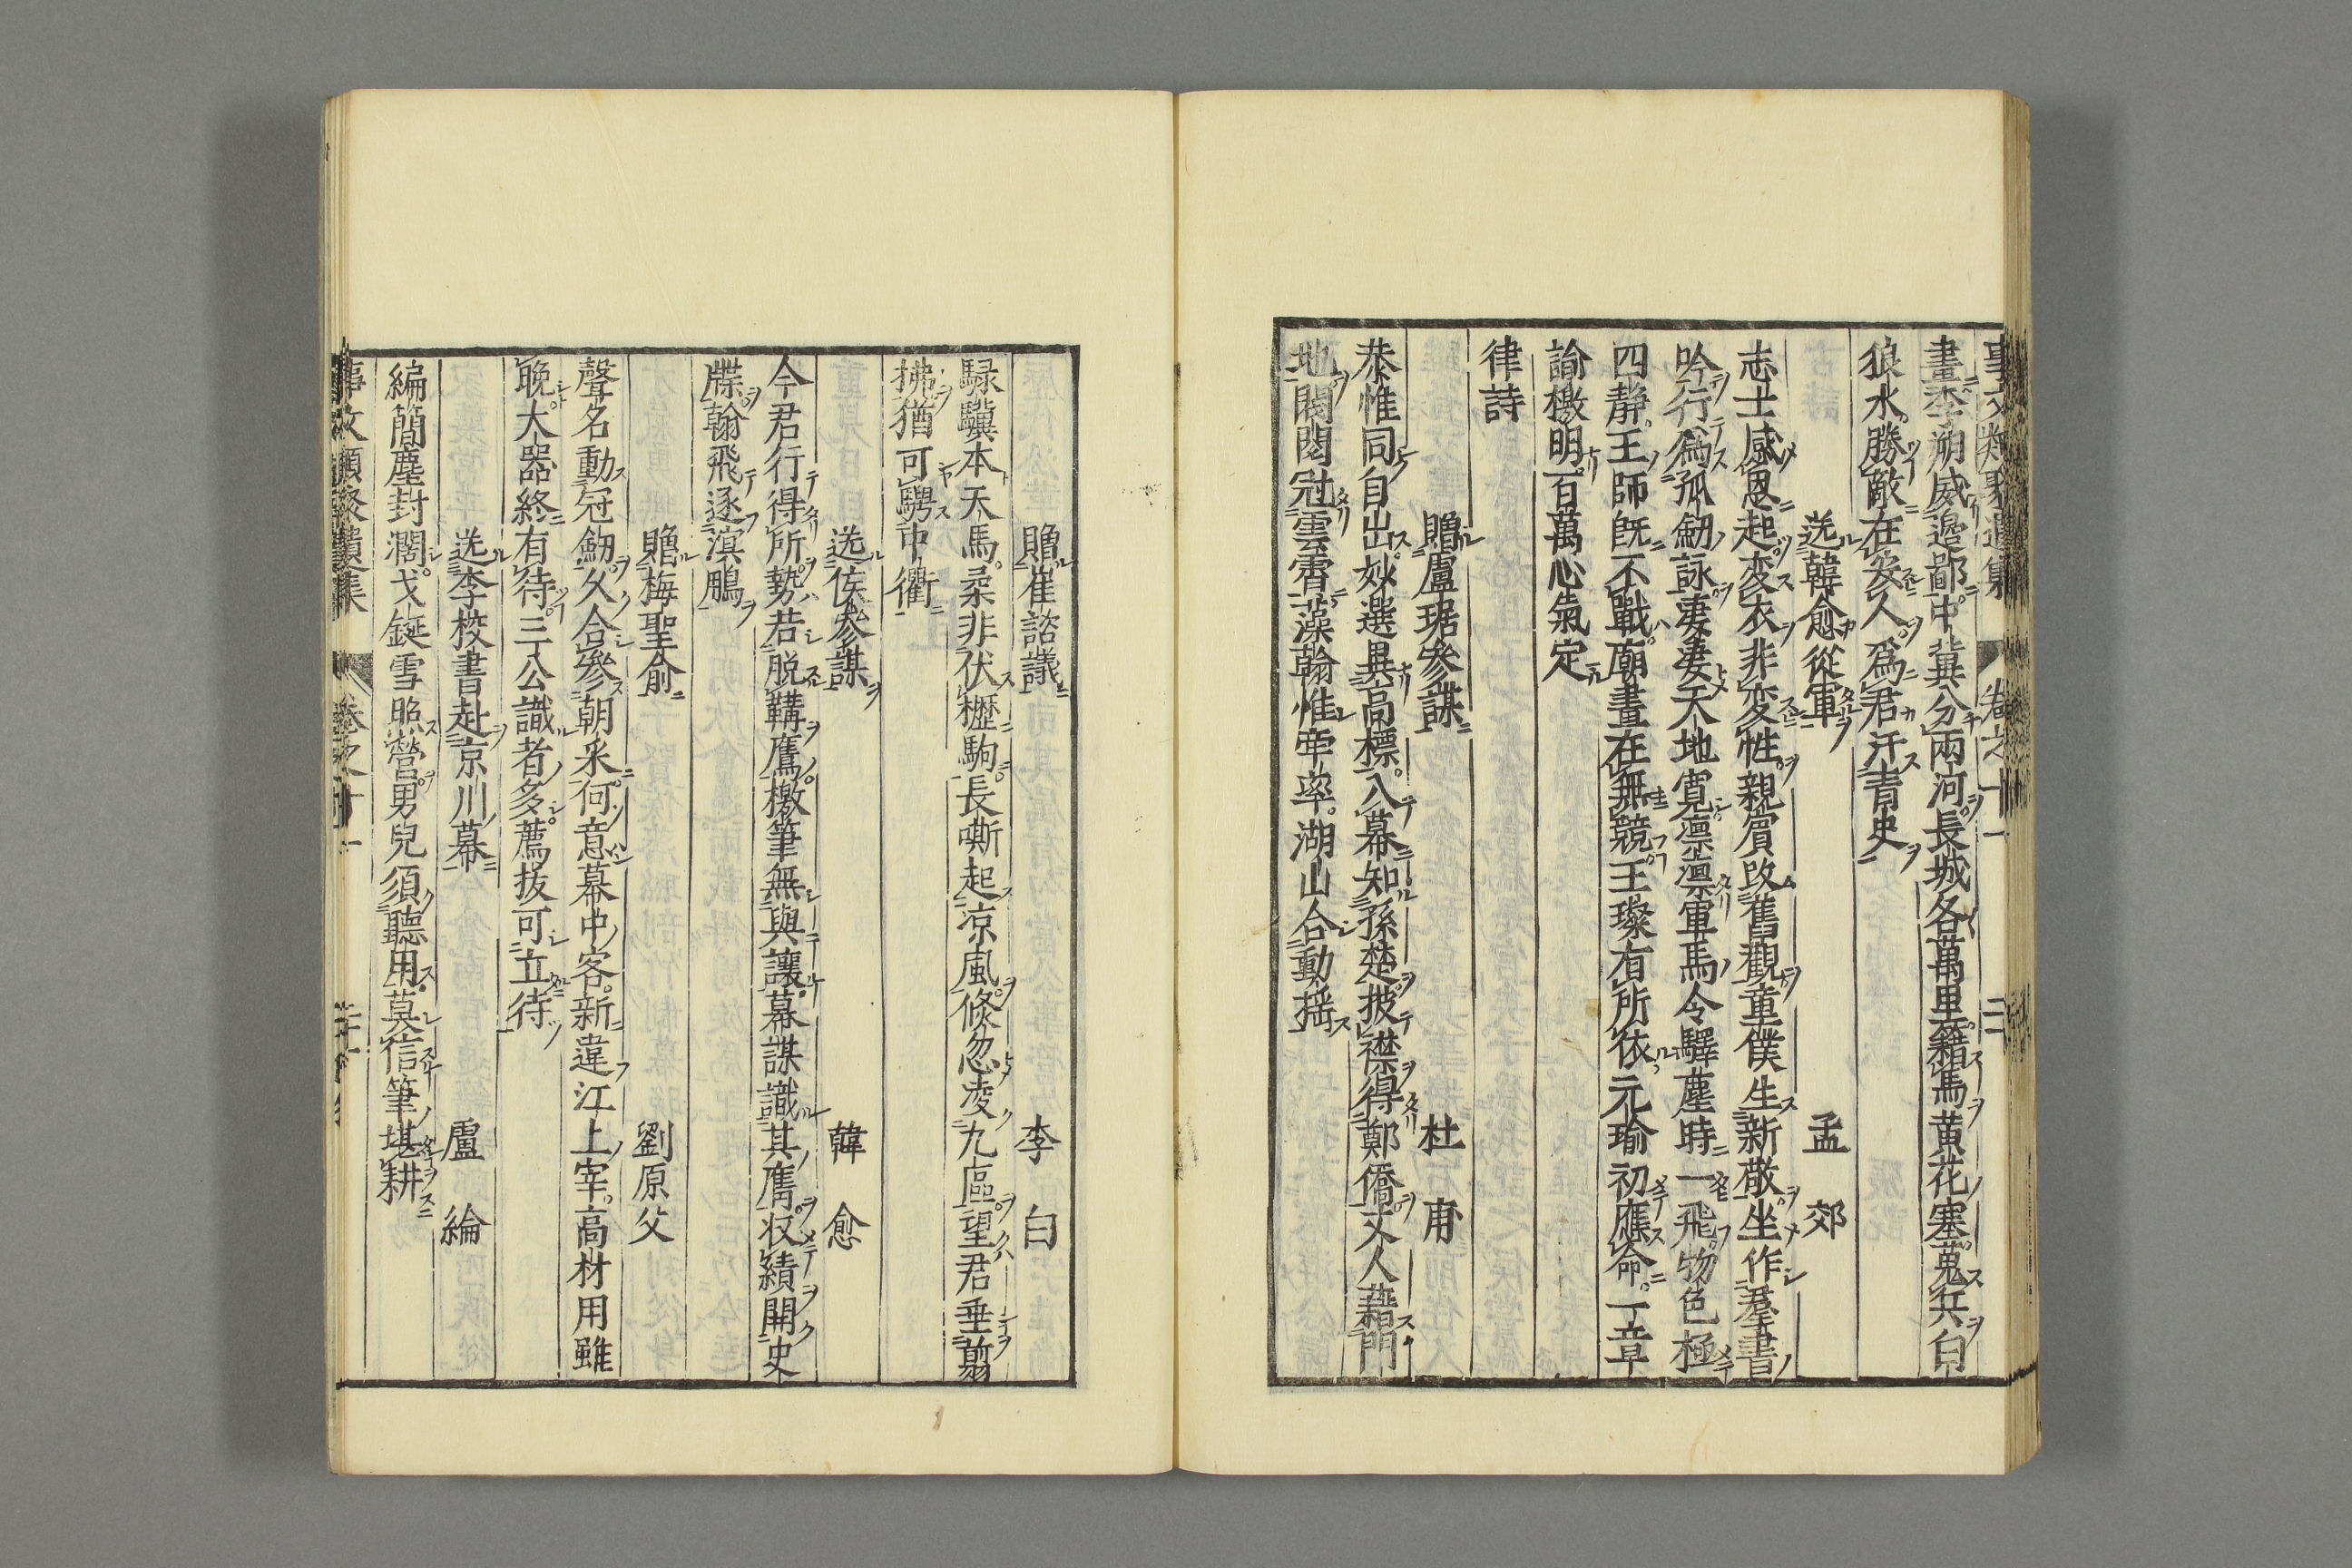 事文類聚遺集 卷之十一
晝李朔威邉鄙中冀分兩河長城各萬里籍馬黄花塞蒐兵白
狼水勝敵在安人爲君汗青史
送韓愈從軍 孟郊
志士感恩起変衣非変性親賔改舊觀童僕生新敬坐作羣書
吟行爲孤劒詠凄凄天地寛凛凛軍馬令驛塵時一飛物色極
四静王師旣不戰廟畫在無競王璨有所依元瑜初應命一章
諭檄明百萬心氣定
律詩
贈盧琚參謀 杜甫
恭惟同自出妙選異高標入幕知孫楚披襟得鄭僑丈人藉門
地閥閲冠雲霄藻翰惟牽率湖山合動揺
贈崔諮議 李白
騄驥本天馬柔非伏櫪駒長嘶起凉風倐忽凌九區望君垂翦
拂猶可騁中衢
送侯參謀 韓愈
今君行得所勢若脱鞲鷹檄筆無與讓幕謀識其膺収績開史
牒翰飛逐溟鵰
贈梅聖俞 劉原父
聲名動冠劒久合參朝采何意幕中客新違江上宰高材用雖
晩大器終有待三公識者多薦抜可立待
送李校書赴京川幕 盧綸
編簡塵封濶戈鋋雪照營男兒須聽用莫信筆堪耕